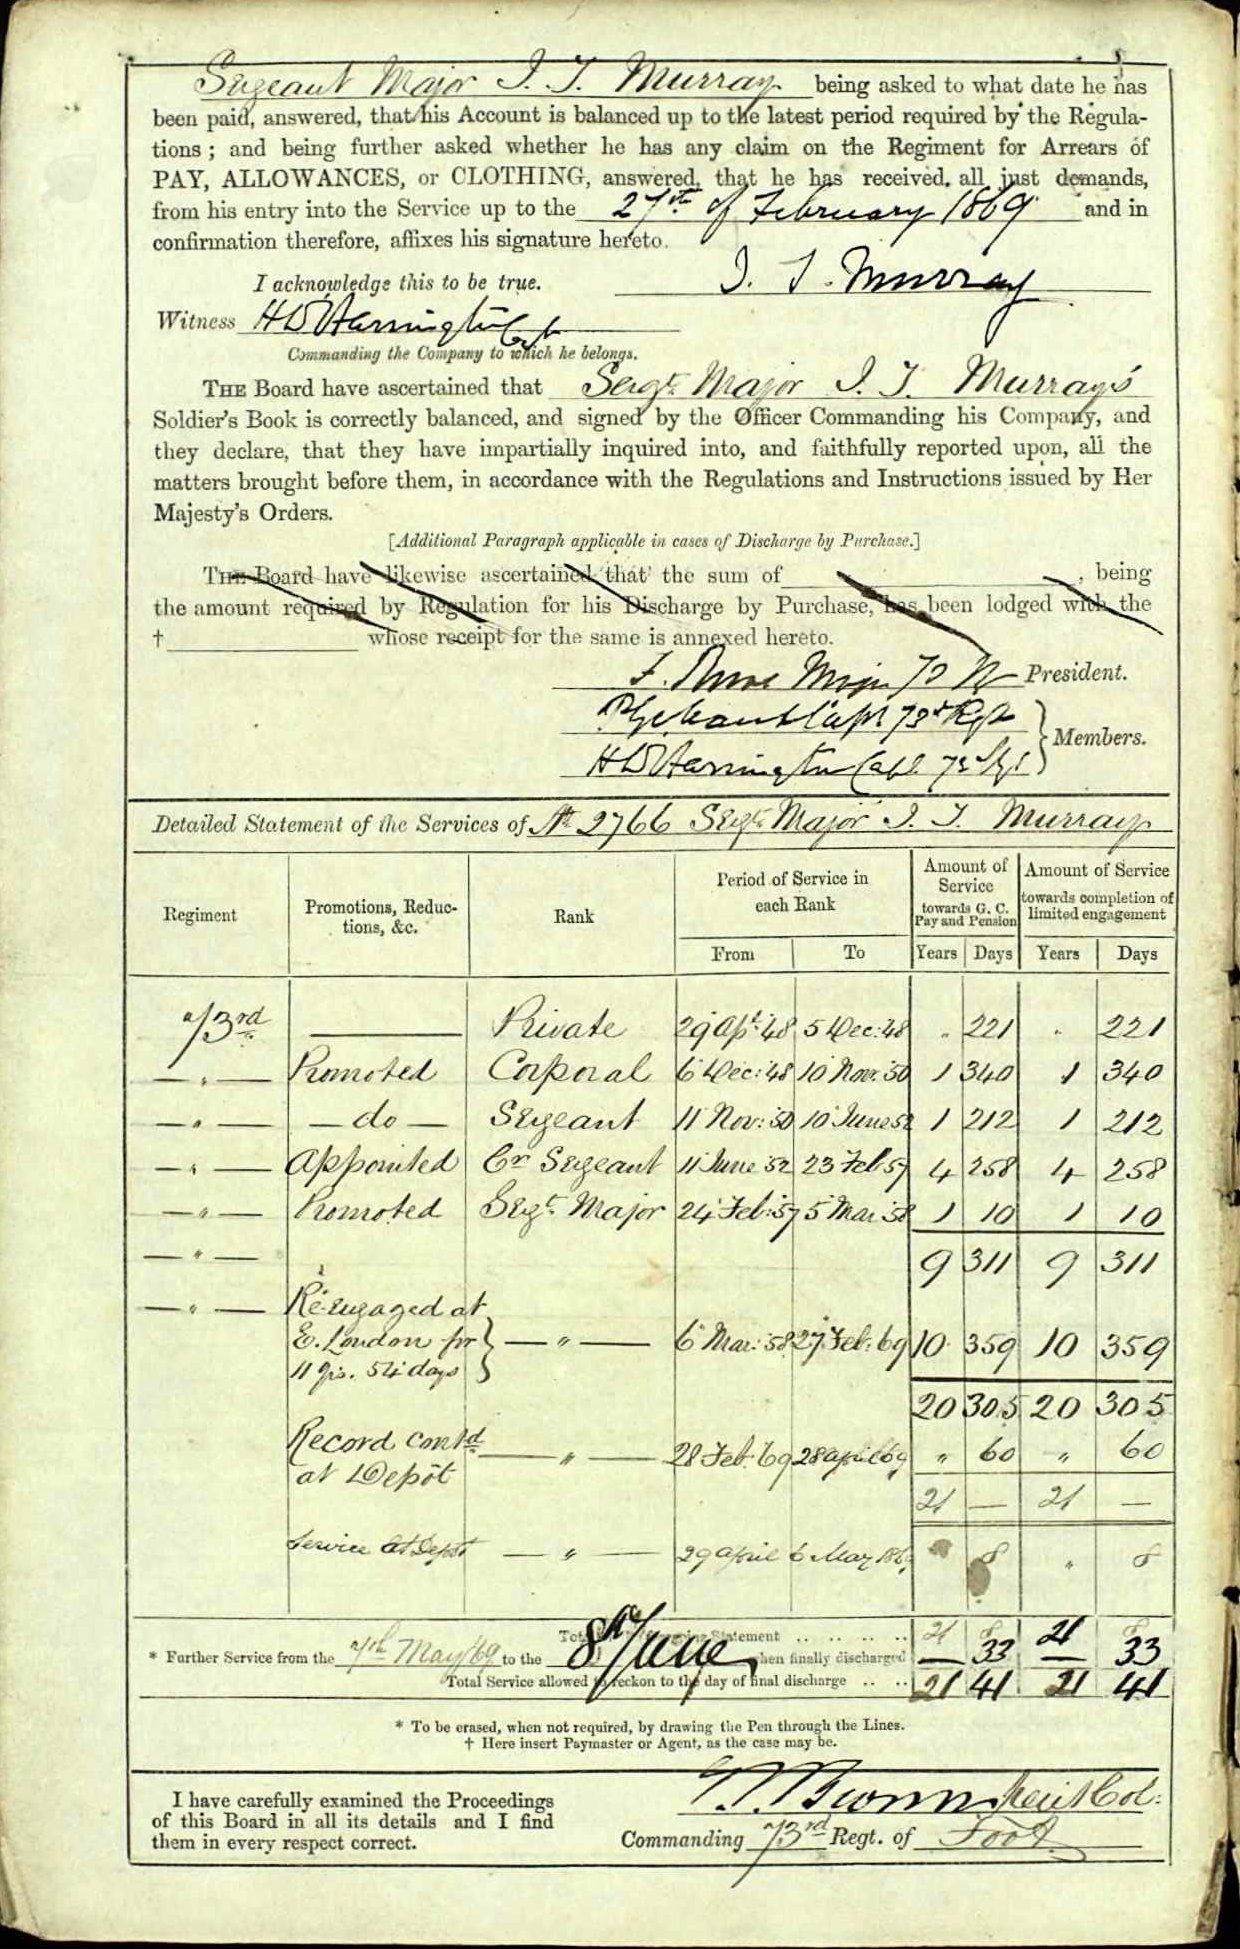 Sergeant Major I. T. Murray being asked to what date he has
been paid, answered, that his Account is balanced up to the latest period required by the Regula-
tions ; and being further asked whether he has any claim on the Regiment for Arrears of
PAY, ALLOWANCES, or CLOTHING, answered, that he has received, all just demands,
from his entry into the Service up to the 27th of February 1869 and in
confirmation therefore, affixes his signature hereto.
I acknowledge this to be true. I. T. Murray
Witness H D Harrington Capt
Commanding the Company to which he belongs.
THE Board have ascertained that Sergt Major I. T. Murray's
Soldier's Book is correctly balanced, and signed by the Officer Commanding his Company, and
they declare, that they have impartially inquired into, and faithfully reported upon, all the
matters brought before them, in accordance with the Regulations and Instructions issued by Her
Majesty's Orders.
[Additional Paragraph applicable in cases of Discharge by Purchase.]
THE Board have likewise ascertained that the sum of , being
the amount required by Regulation for his Discharge by Purchase, has been lodged with the
† whose receipt for the same is annexed hereto.
Major 73 President.
Capt 73d Regt
H D Harrington Capt 73d Regt Members.
Detailed Statement of the Services of No 2766 Sergt Major I. T. Murray
Regiment | Promotions, Reductions, &c. | Rank | Period of Service in each Rank | Amount of Service towards G. C. Pay and Pension | Amount of Service towards completion of limited engagement
From | To | Years | Days | Years | Days
73rd — Private 29 Apl: 48 5 Dec: 48 " 221 " 221
— " — Promoted Corporal 6 Dec: 48 10 Nov: 50 1 340 1 340
— " — — do — Sergeant 11 Nov: 50 10 June 52 1 212 1 212
— " — Appointed Cr Sergeant 11 June 52 23 Feb 57 4 258 4 258
— " — Promoted Sergt. Major 24 Feb: 57 5 Mar 58 1 10 1 10
— " — 9 311 9 311
— " — Re-engaged at
E. London for } — " — 6 Mar: 58 27 Feb: 69 10 359 10 359
11 yrs. 54 days
20 305 20 305
Record contd — " — 28 Feb: 69 28 april 69 " 60 " 60
at Depôt
21 — 21 —
Service at Depôt — " — 29 april 6 May 1869 8 " 8
Statement .. .. .. .. 21 8 21 8
* Further Service from the 7th May 69 to the 8th June when finally discharged — 33 — 33
Total Service allowed to reckon to the day of final discharge .. .. 21 41 21 41
* To be erased, when not required, by drawing the Pen through the Lines.
† Here insert Paymaster or Agent, as the case may be.
I have carefully examined the Proceedings
of this Board in all its details and I find
them in every respect correct.
Browne Lieut Col:
Commanding 73rd Regt. of Foot